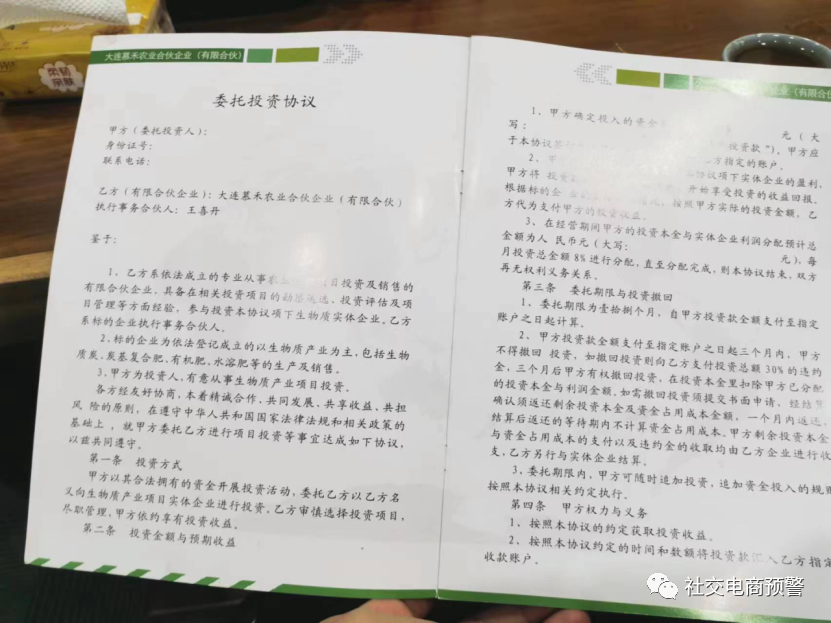 柔韧
亲肤
大连慕禾农业合伙企业（有限合伙）
委托投资协议
甲方（委托投资人）：
身份证号：
联系电话：
乙方（有限合伙企业）：大连慕禾农业合伙企业（有限合伙）
执行事务合伙人：王喜丹
鉴于：
1、乙方系依法成立的专业从事农 目投资及销售的
有限合伙企业，具备在相关投资项目的 ，投资评估及项
目管理等方面经验，参与投资本协议项下生物质实体企业。乙方
系标的企业执行事务合伙人。
2、标的企业为依法登记成立的以生物质产业为主，包括生物
质炭、炭基复合肥、有机肥、水溶肥等的生产及销售。
3、甲方为投资人，有意从事生物质产业项目投资。
各方经友好协商，本着精诚合作、共同发展、共享收益、共担
风 险的原则，在遵守中华人共和国国家法律法规和相关政策的
基础上 ，就甲方委托乙方进行项目投资等事宜达成如下协议，
以兹共同遵守。
第一条 投资方式
甲方以其合法拥有的资金开展投资活动，委托乙方以乙方名
义向生物质产业项目实体企业进行投资。乙方审慎选择投资项目，
尽职管理，甲方依约享有投资收益。
第二条 投资金额与预期收益
企业（有限合伙
1、甲方确定投入的资金 元（大
写： 投资款"），甲方应
于本协议 乙方指定的账户。
2、甲 协议项下实体企业的盈利，
甲方将 投资 开始享受投资的收益回报。
根据标的企 按照甲方实际的投资金额，乙
方代为支付甲方的投资收益。
3、在经营期间甲方的投资本金与实体企业利润分配预计总
金额为人 民币元（大写： 元），每
月投资总金额 8%进行分配，直至分配完成，则本协议结束，双方
再无权利义务关系。
第三条 委托期限与投资撤回
1、委托期限为壹拾捌个月，自甲方投资款金额支付至指定
账户之日起计算。
2、甲方投资款金额支付至指定账户之日起三个月内，甲方
不得撤回 投资，如撤回投资则向乙方支付投资总额 30%的违约
金，三个月后甲方有权撤回投资，在投资本金里扣除甲方已分配
的投资本金与利润金额。如需撤回投资须提交书面申请，经结算
确认须返还剩余投资本金及资金占用成本金额，一个月内返还，
结算后返还的等待期内不计算资金占用成本。甲方剩余投资本金
与资金占用成本的支付以及违约金的收取均由乙方企业进行收
支，乙方另行与实体企业结算。
3、委托期限内，甲方可随时追加投资，追加资金投入的规则
按照本协议相关约定执行。
第四条 甲方权力与义务
1、按照本协议的约定获取投资收益。
2、按照本协议约定的时间和数额将投资款汇入乙方指定
收款账户。
社交电商预警